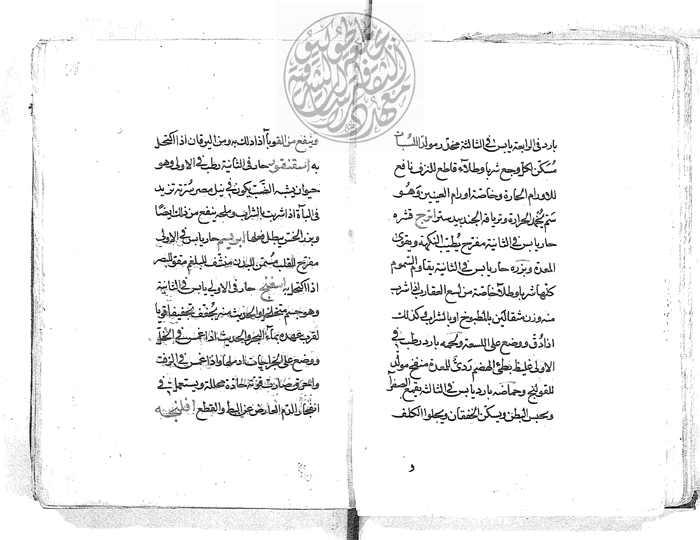 بارد في الرابعة يابس في الثالثة مخدر مولد اللسبات
مسكن لكل وجع شربا وطلاء قاطع للنزف نافع
للاورام الحارة وخاصة اورام العينين وهو
سم يجمد الحرارة وترياقه الجندبيدستر اترج قشره
حار يابس في الثانية مفرح يطيب النكهة ويقوى
المعدة وبزره حار يابس في الثانية يقاوم السموم
كلها شربا وطلاء خاصة من لسع العقارب اذا شرب
منه وزن مثقالين بالمطبوخ او بالشراب وكذلك
اذا دق ووضع على اللسعة ولحمه بارد رطب في
الاولى غليظ بطئ الهضم ردئ للمعدة منفخ مولد
للقولنج وحماضه بارد يابس في الثالثة يقمع الصفرا
ويحبس البطن ويسكن الخفقان ويجلوا الكلف
و
وينفع من القوبا اذا دلك به ومن اليرقان اذا اكتحل
به اسقنقور حار في الثانية رطب في الاولى وهو
حيوان يشبه الضب يكون في نيل مصر سرته تزيد
في الباة اذا شربت بالشراب وملحه ينفع من ذلك ايضا
وبزر الخس يبطل فعلها ابريسم حار يابس في الاولى
مفرح للقلب مسمن للبدن منشف للبلغم مقو للبصر
اذا اكتحل به اسفنج حار في الاولى يابس في الثانية
وهو جسم متخلخل والحديث منه يجفف تجفيفا قويا
لقرب عهده بماء البحر والحديث اذا غمس في الخل
ووضع على الجراحات ادملها واذا غمس في الزفت
واحرق صارت قوته حادة محللة ويستعمل في
انفجار الدم العارض عن البط والقطع
معهد الثقافة والدراسات الشرقية